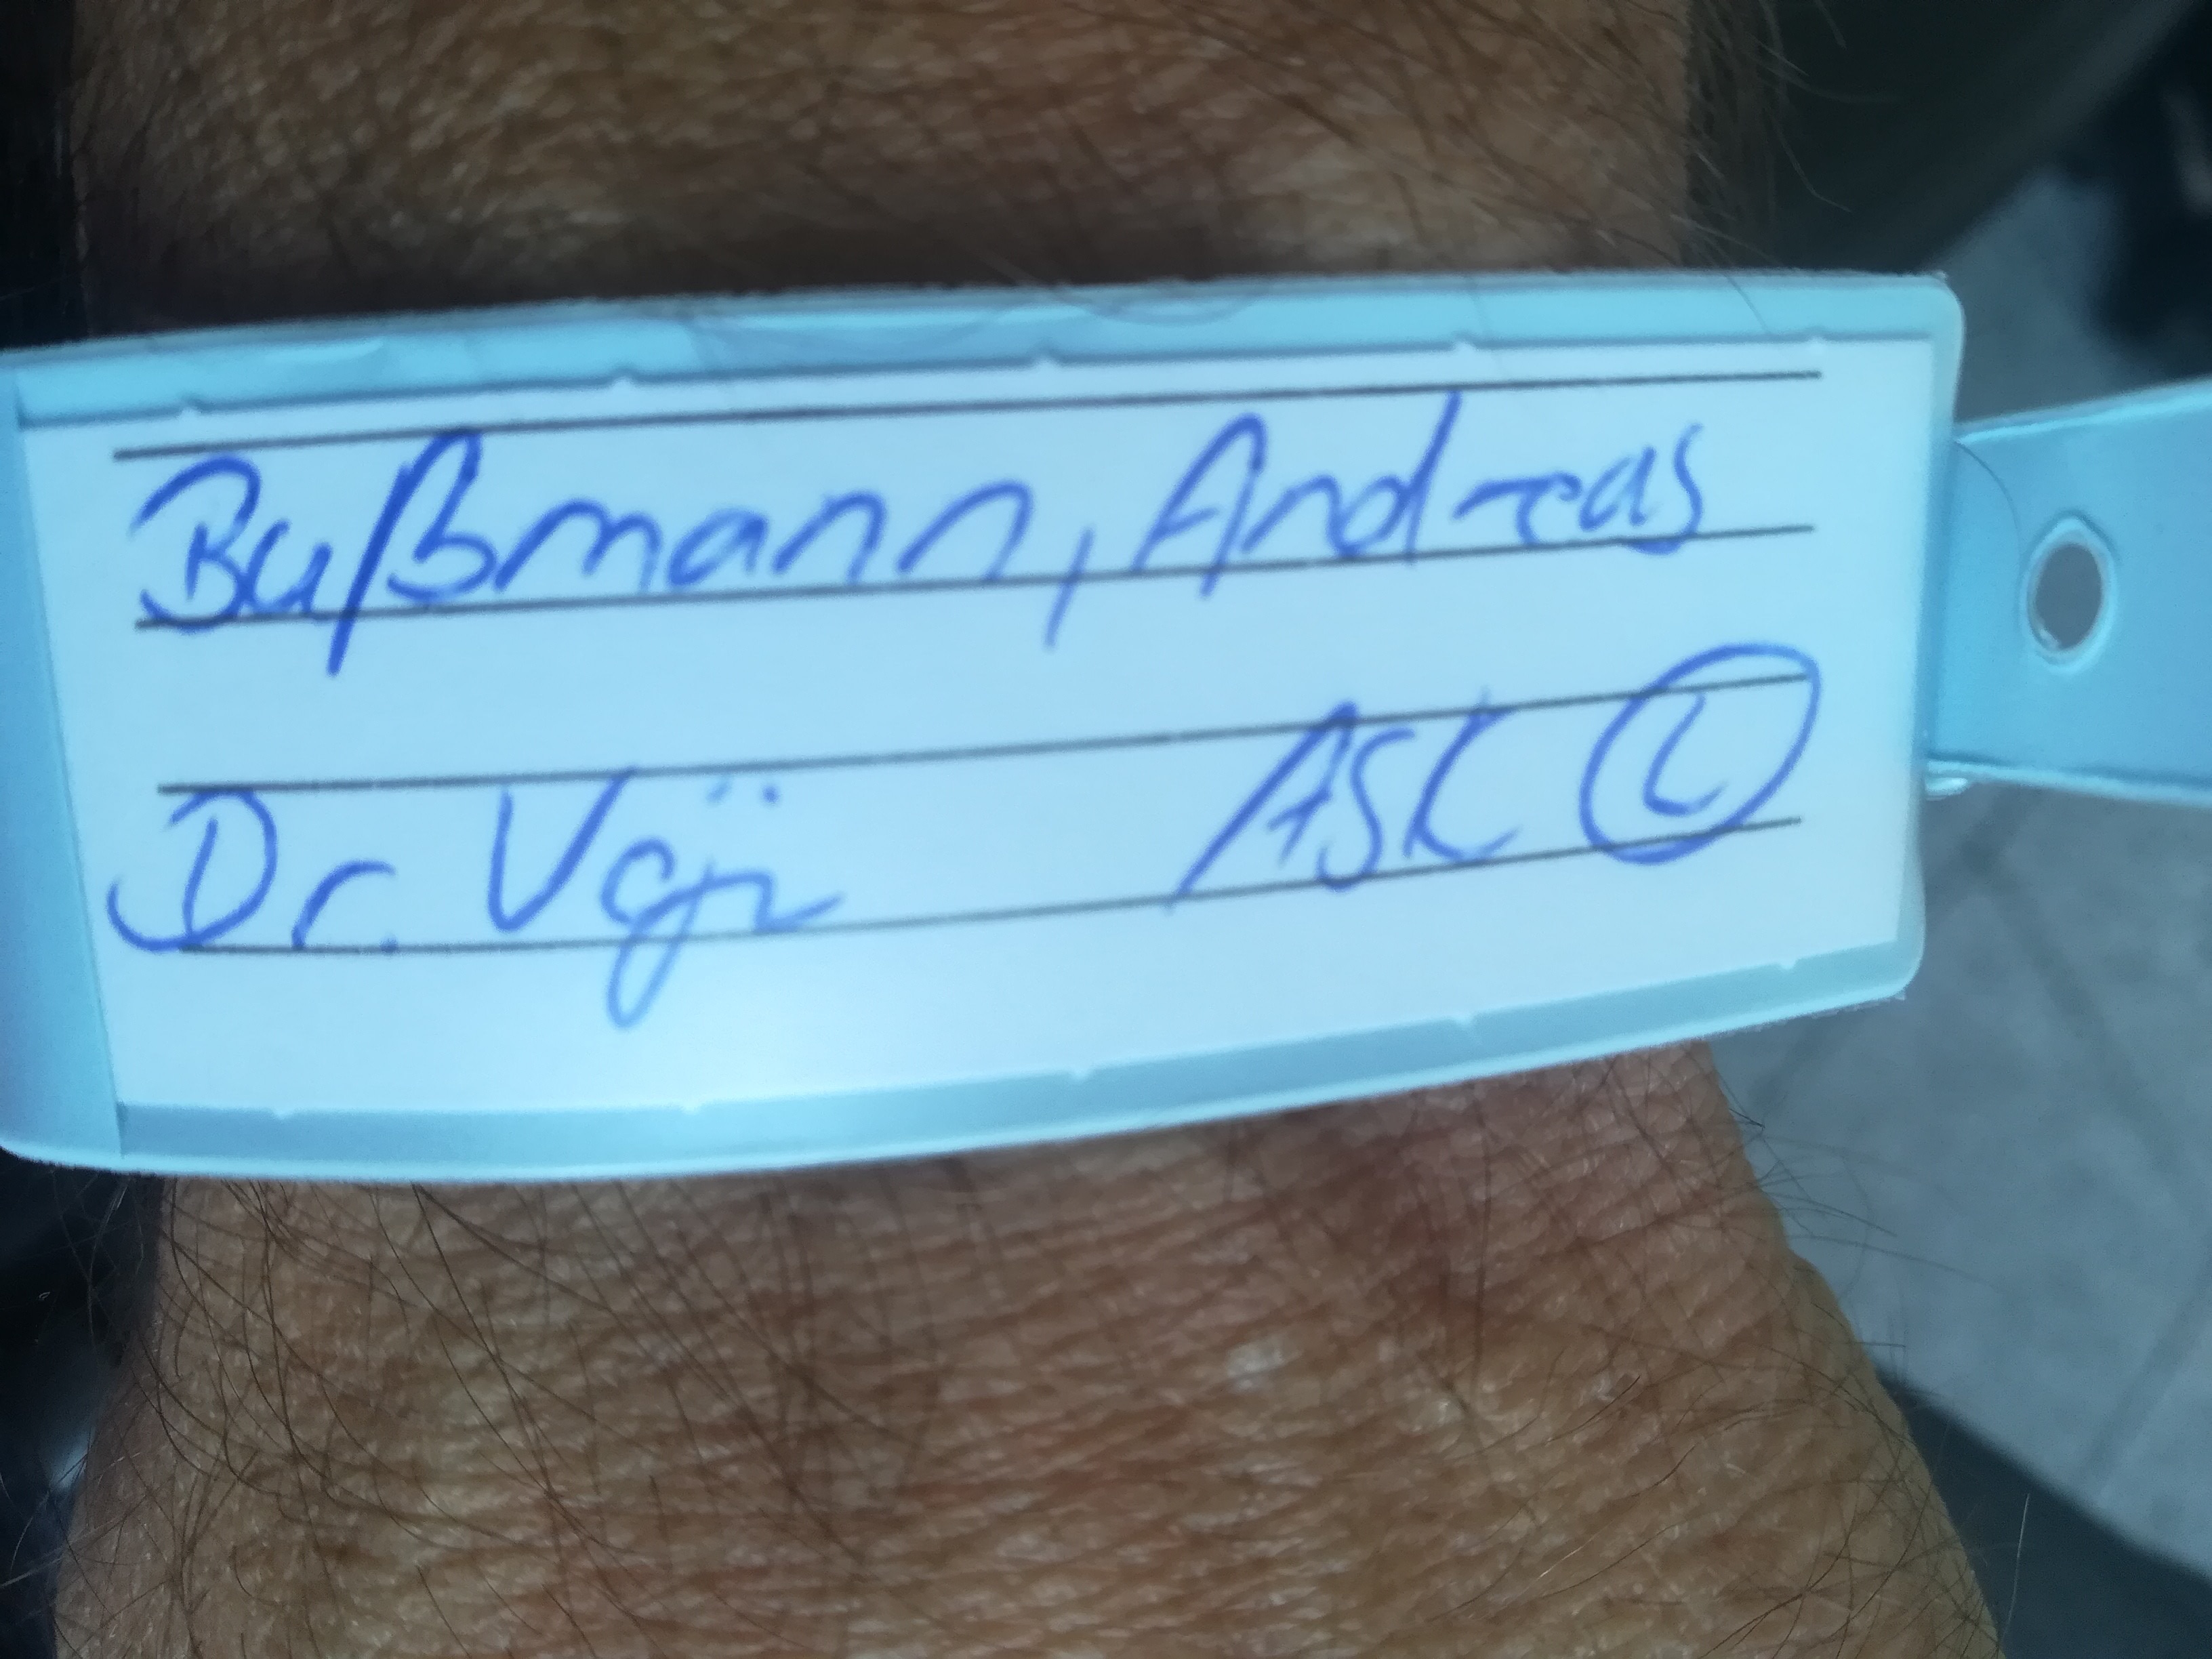 Bußmann, Andreas
Dr. ASK Ⓛ